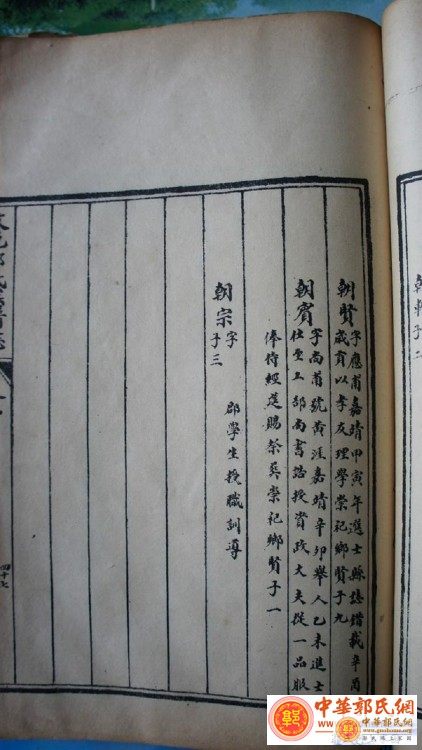 朝賢 字應甫嘉靖甲寅年進士縣誌錯載辛酉
歲貢以孝友理學崇祀鄉賢子九
朝賓 字尚甫號黃涯嘉靖辛卯舉人乙未進士
仕至工部尚書誥授資政大夫從一品服
俸侍經筵賜祭葬崇祀鄉賢子一
朝宗 字 郡學生授職訓導
子三
四十七
中華郭氏網